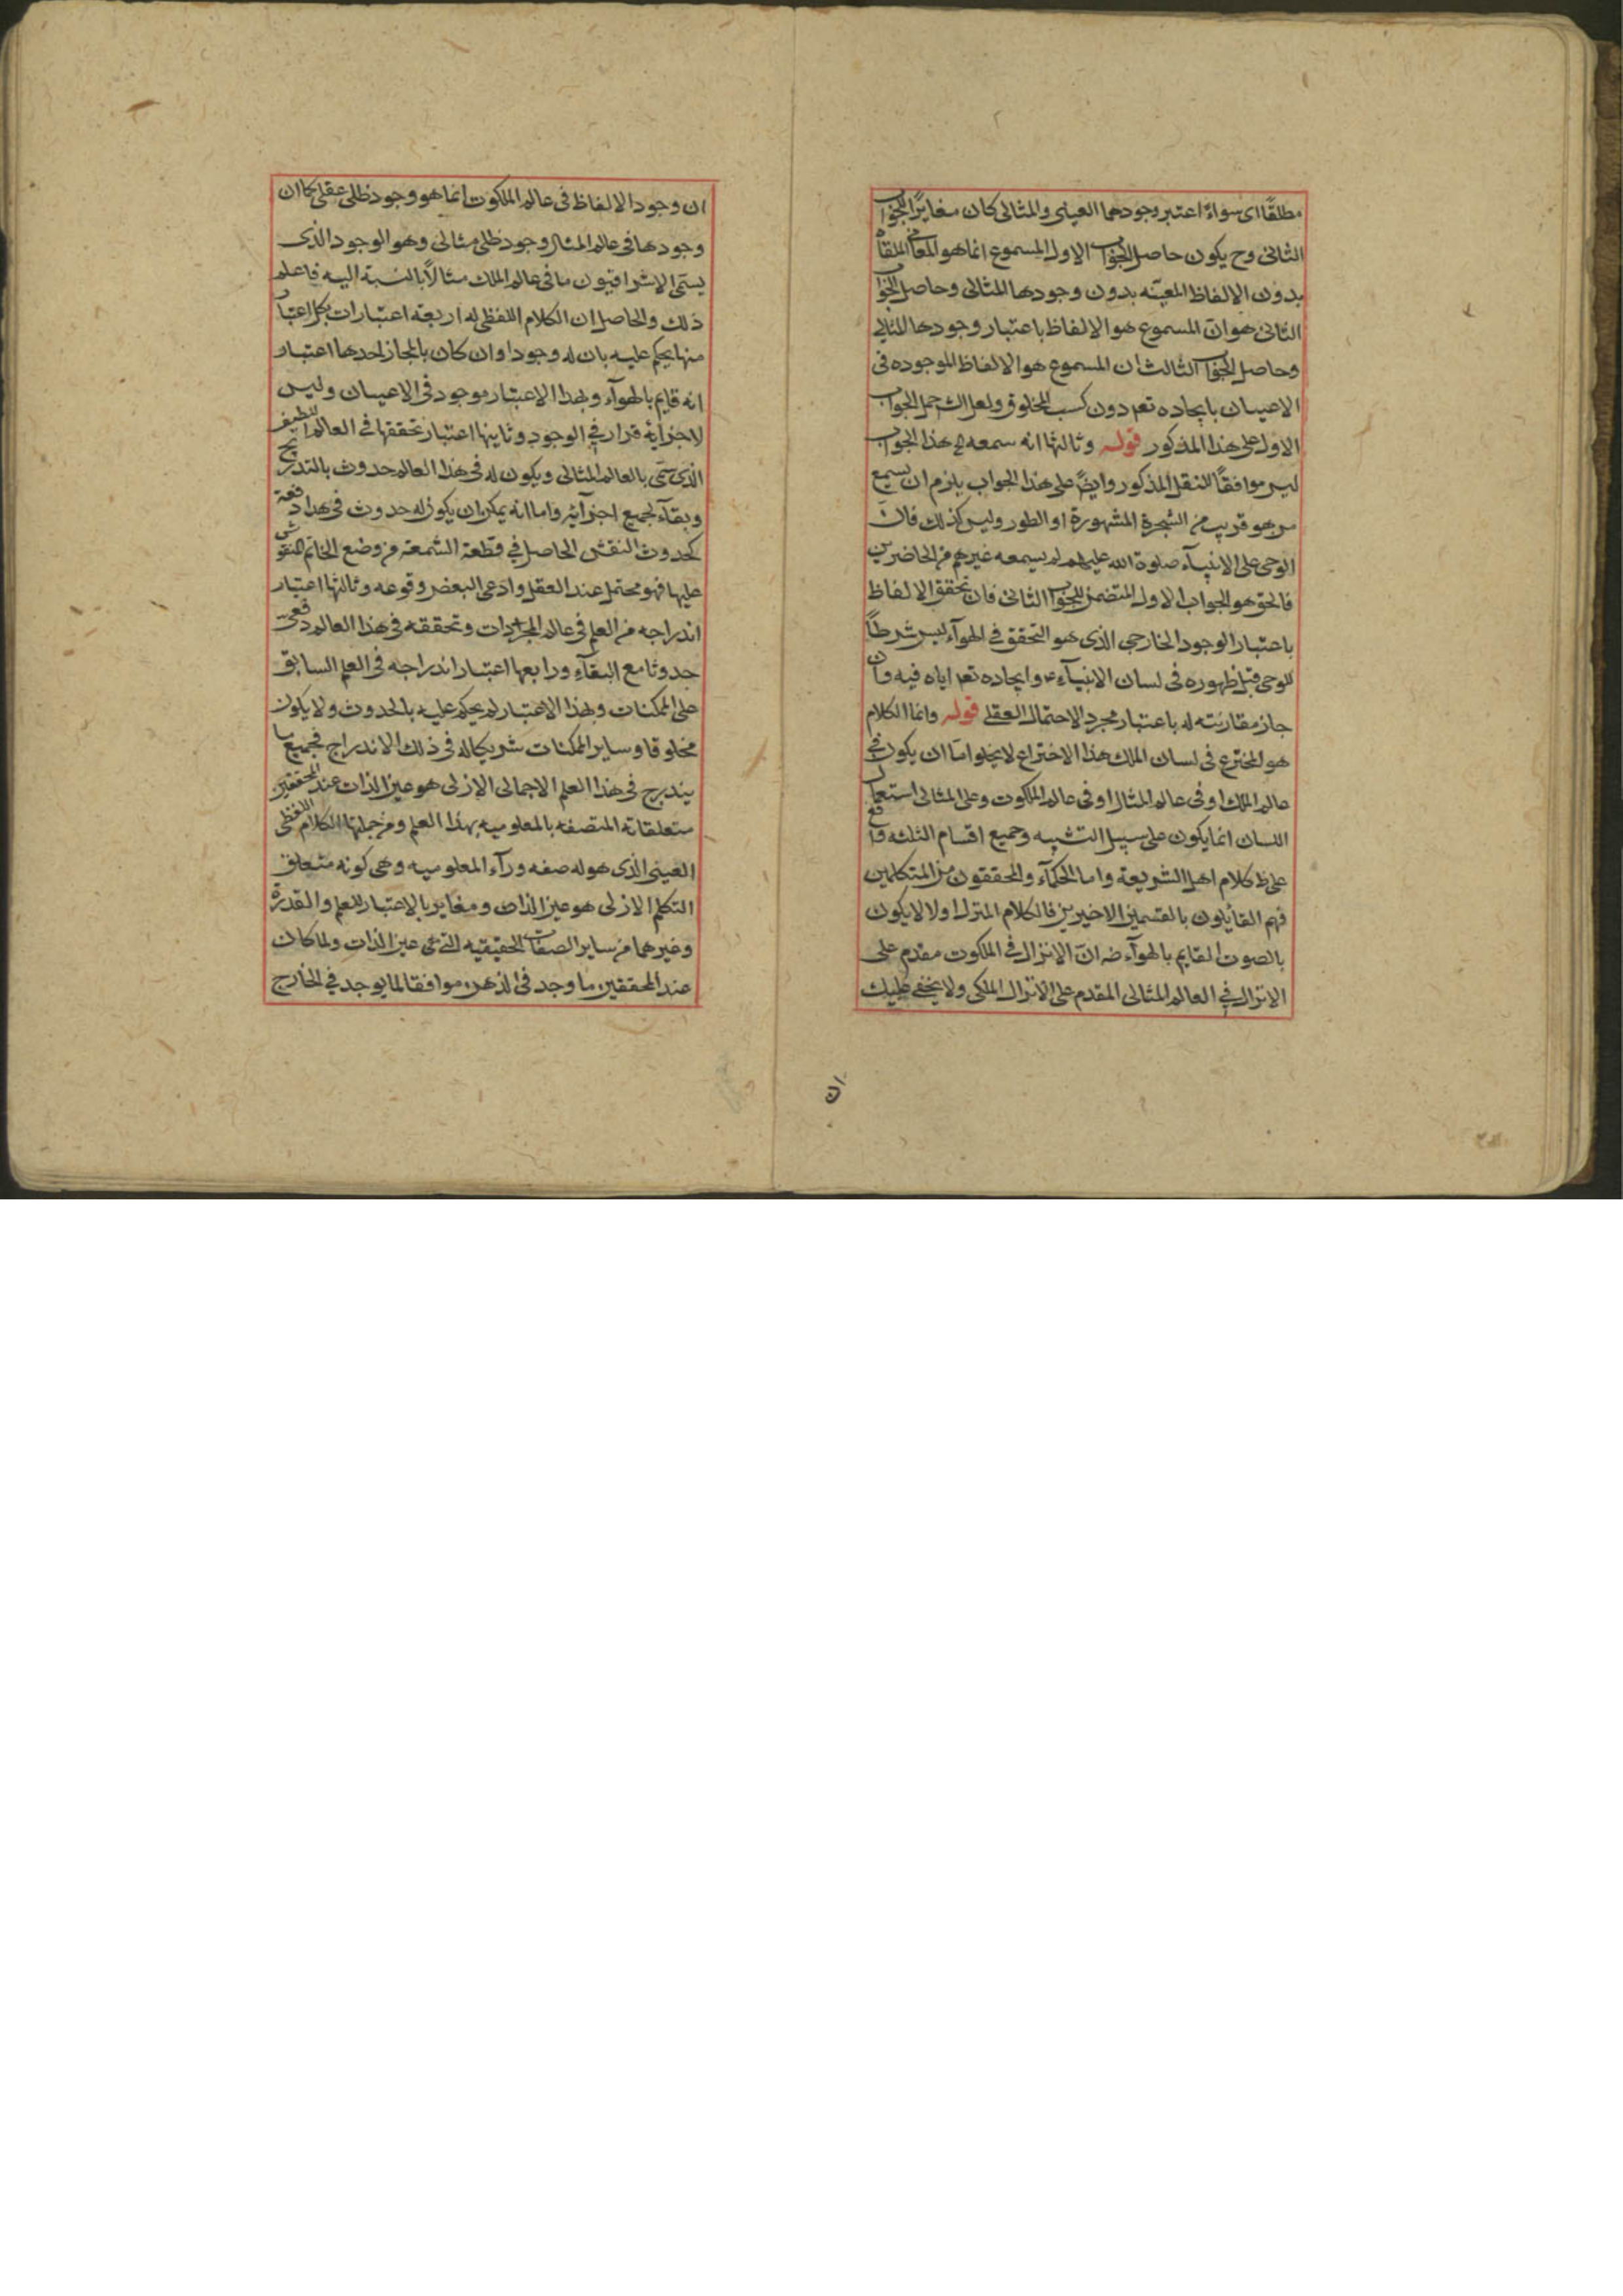 مطلقًا اى سواءً اعتبر وجودها العينى والمثالى كان مغايرًا للجواب
الثانى وح يكون حاصل الجواب الاول المسموع انما هو المعانى الملقاة
بدون الالفاظ المعيّنه بدون وجودها المثالى وحاصل الجواب
الثانى هو انّ المسموع هو الالفاظ باعتبار وجودها المثالى
وحاصل الجواب الثالث ان المسموع هو الالفاظ الموجوده فى
الاعيان بايجاده تعم دون كسب المخلوق ولعل الشـ حمل الجواب
الاول على هذا المذكور قوله وثالثها انه سمعه الح هذا الجواب
ليس موافقًا للنقل المذكور وايضًا على هذا الجواب يلزم ان يسمع
من هو قريب من الشجرة المشهورة او الطور وليس كذلك فانّ
الوحى على الانبيآء صلوة الله عليهم لم يسمعه غيرهم من الحاضرين
فالحق هو الجواب الاول المتضمن للجواب الثانى فان تحقق الالفاظ
باعتبار الوجود الخارجى الذى هو التحقق فى الهوآء ليس شرطًا
للوحى قبل ظهوره فى لسان الانبيآء ع وايجاده تعم اياه فيه وان
جاز مقارنته له باعتبار مجرد الاحتمال العقلى قوله وانما الكلام
هو المخترع فى لسان الملك هذا الاختراع لا يخلو امّا ان يكون فى
عالم الملك او فى عالم المثال او فى عالم الملكوت وعلى المثالى استعمال
اللسان انما يكون على سبيل التشبيه وجميع اقسام الثلثه واقع
على ظ كلام اهل الشريعة واما الحكمآء والمحققون من المتكلمين
فهم القآيلون بالقسمين الاخيرين فالكلام المنزل اولا لا يكون
بالصوت القايم بالهوآء ضه انّ الانزال فى الملكوت مقدم على
الانزال فى العالم المثالى المقدم على الانزال الملكى ولا يخفى عليك
ان
ان وجود الالفاظ فى عالم الملكوت انما هو وجود ظلى عقلى كما ان
وجودها فى عالم المثال وجود ظلى مثالى وهو الوجود الذى
يسمّى الاشراقيون ما فى عالم الملك مثالًا بالنسبة اليه فاعلم
ذلك والحاصل ان الكلام اللفظى له اربعة اعتبارات بكل اعتبار
منها يحكم عليه بان له وجودا وان كان بالمجاز احدها اعتبار
انه قايم بالهوآء وبهذا الاعتبار موجود فى الاعيان وليس
لاجزائه قرار فى الوجود وثانيها اعتبار تحققها فى العالم اللطيف
الذى سمّى بالعالم المثالى ويكون له فى هذا العالم حدوث بالتدريج
وبقآء لجميع اجزآئه واما انه يمكن ان يكون له حدوث فى هذا دفعة
كحدوث النقش الحاصل فى قطعة الشمعة من وضع الخاتم المنقوش
عليها فهو محتمل عند العقل وادعى البعض وقوعه وثالثها اعتبار
اندراجه من العلم فى عالم المجرّدات وتحققه فى هذا العالم دفعى
حدوثا مع البقآء ورابعها اعتبار اندراجه فى العلم السابق
على الممكنات وبهذا الاعتبار لم يحكم عليه بالحدوث ولا يكون
مخلوقا وساير الممكنات شريكا له فى ذلك الاندراج فجميع ما
يندرج فى هذا العلم الاجمالى الازلى هو عين الذات عند المحققين
متعلقاته المتصفه بالمعلوميه بهذا العلم ومن جملتها الكلام اللفظى
العينى الذى هو له صفه ورآء المعلوميه وهى كونه متعلق
التكلم الازلى هو عين الذات ومغاير بالاعتبار للعلم والقدرة
وغيرهما من ساير الصفات الحقيقيه التى هى عين الذات ولما كان
عند المحققين ما وجد فى الذهن موافقا لما يوجد فى الخارج